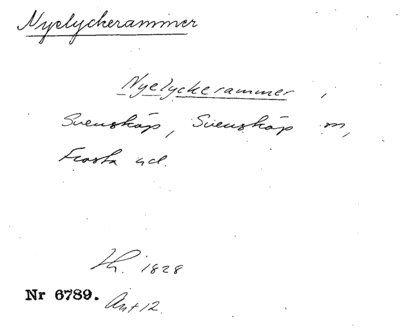 Nyelyckerammer
Nyelyckerammer i
Svensköp, Svensköp sn,
Frosta hd.
Lh. 1828
Nr 6789. Akt 12.